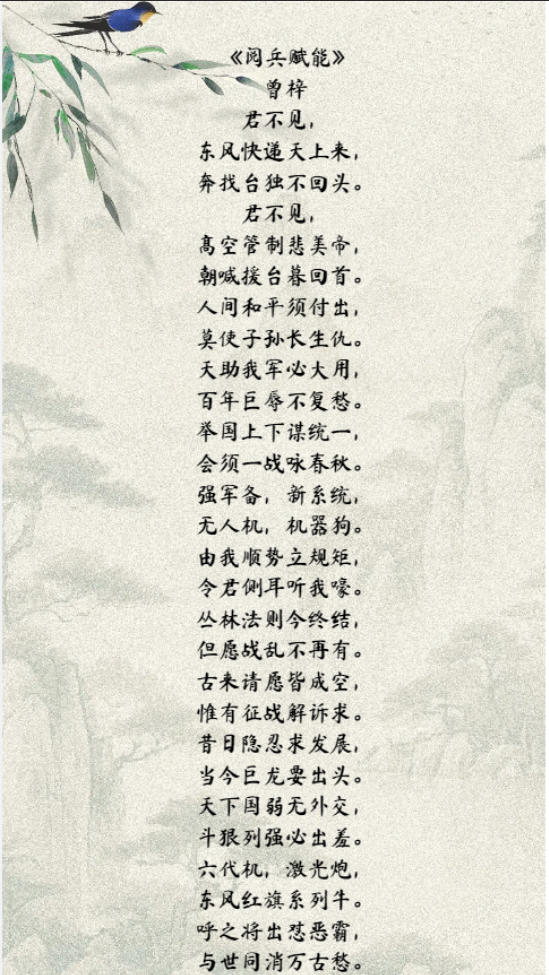 《阅兵赋能》
曾梓
君不见，
东风快递天上来，
奔找台独不回头。
君不见，
高空管制悲美帝，
朝喊援台暮回首。
人间和平须付出，
莫使子孙长生仇。
天助我军必大用，
百年巨辱不复愁。
举国上下谋统一，
会须一战咏春秋。
强军备，新系统，
无人机，机器狗。
由我顺势立规矩，
令君侧耳听我嚎。
丛林法则今终结，
但愿战乱不再有。
古来请愿皆成空，
惟有征战解诉求。
昔日隐忍求发展，
当今巨龙要出头。
天下国弱无外交，
斗狠列强必出羞。
六代机，激光炮，
东风红旗系列牛。
呼之将出怼恶霸，
与世同消万古愁。